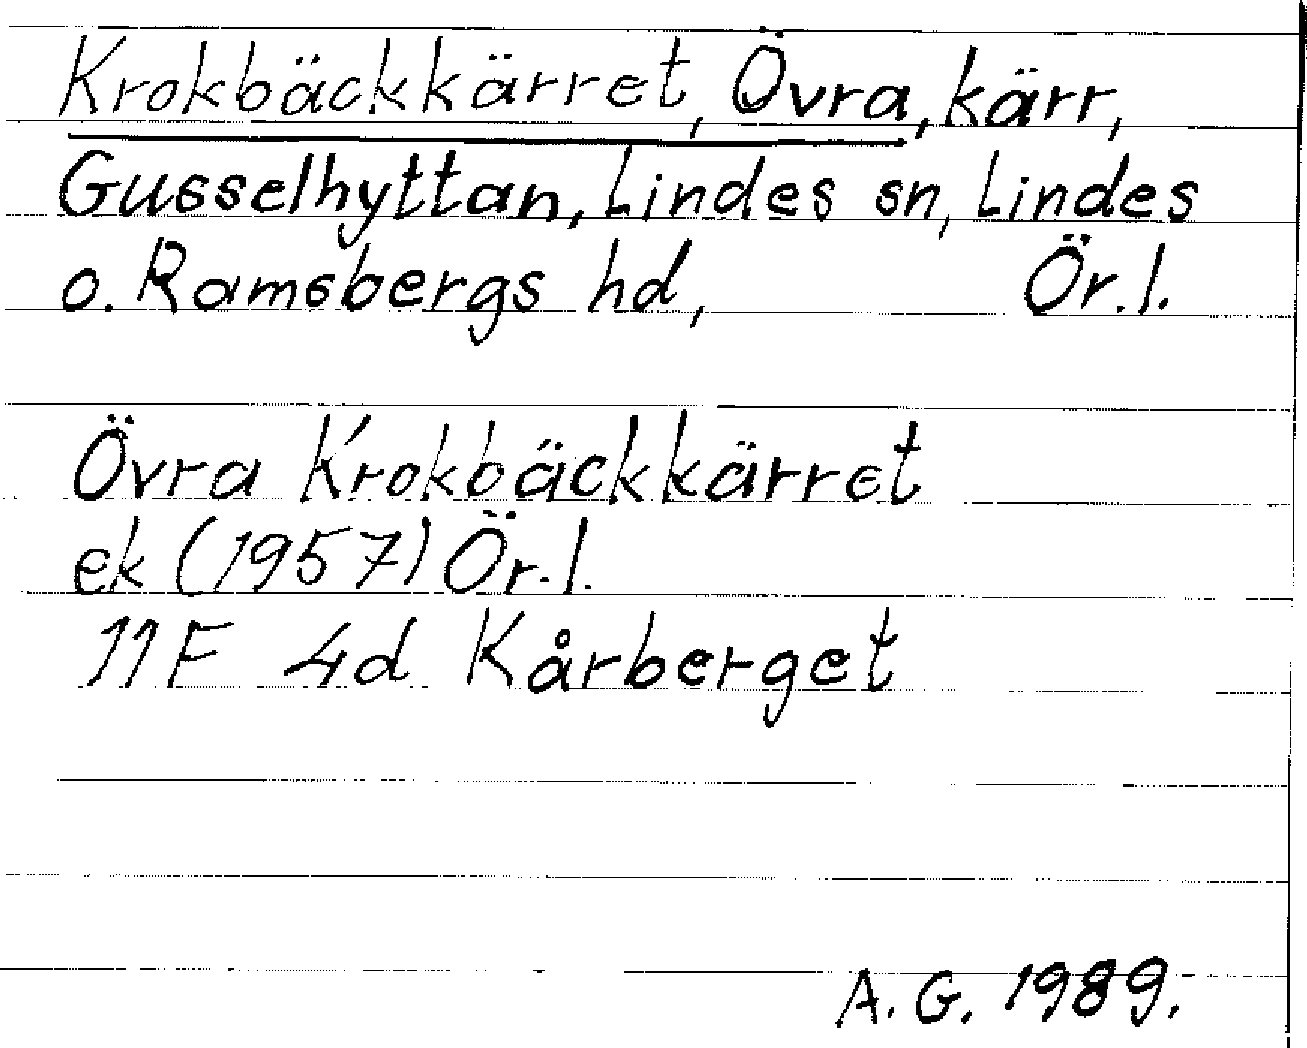 Krokbäckkärret, Övra, kärr,
Gusselhyttan, Lindes sn, Lindes
o. Ramsbergs hd, Ör.l.
Övra Krokbäckkärret
ek (1957) Ör.l.
11F 4d Kårberget
A.G. 1989.